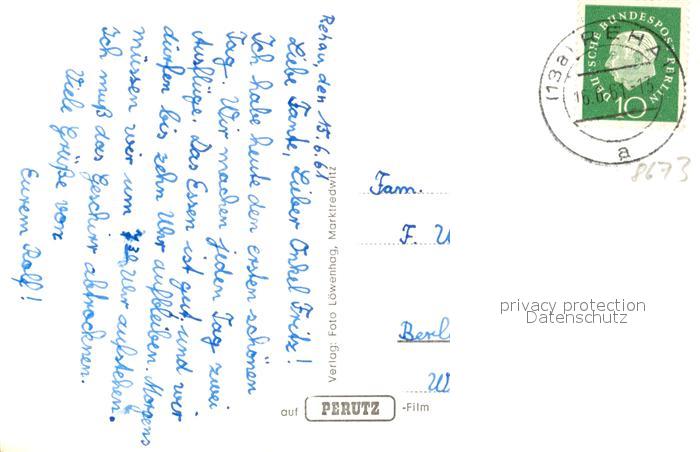 Rehau, den 15.6.61
Liebe Tante, Lieber Onkel Fritz!
Ich habe heute den ersten schönen
Tag. Wir machen jeden Tag zwei
Ausflüge. Das Essen ist gut und wir
dürfen bis zehn Uhr aufbleiben. Morgens
müssen wir um 7 30 Uhr aufstehen.
Ich muß das Geschirr abtrocknen.
Viele Grüße von
Eurem Rolf!
Verlag: Foto Löwenhag, Marktredwitz
auf PERUTZ -Film
Fam.
F.
Berl
DEUTSCHE BUNDESPOST BERLIN
10
(13a) REHAU
16.6.61-13
a
8673
privacy protection
Datenschutz